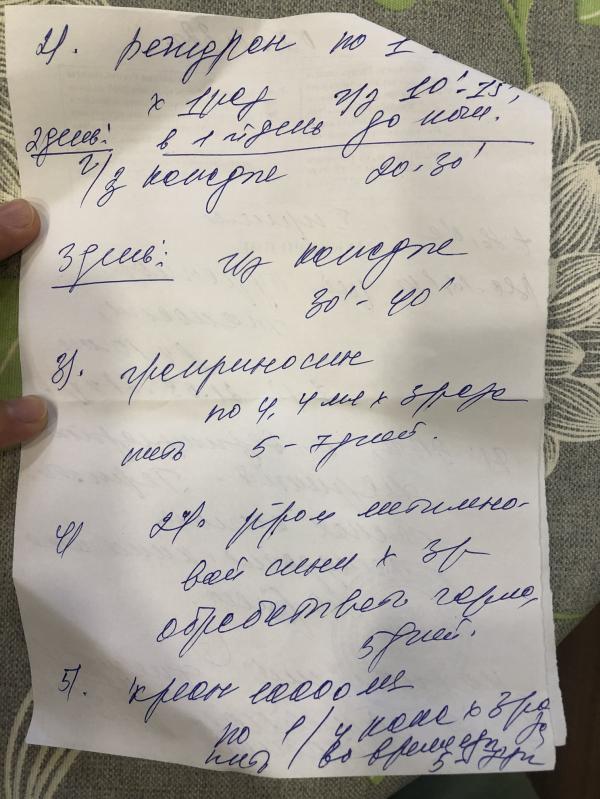 2). регидрон по 1
х 1 раз ч/з 10'-15'
в 1й день до ночи.
2 день:
ч/з каждые 20-30'
3 день: ч/з каждые
30'-40'
3). гроприносин
по 4,4 мл х 3 раза
пить 5-7 дней.
4) 2% р-ром метилено-
вой сини х 3 р
обрабатывать горло,
5 дней.
5). креон 10000 ед
по 1/4 капс х 3 раза
пить во время еды
5-7 дн